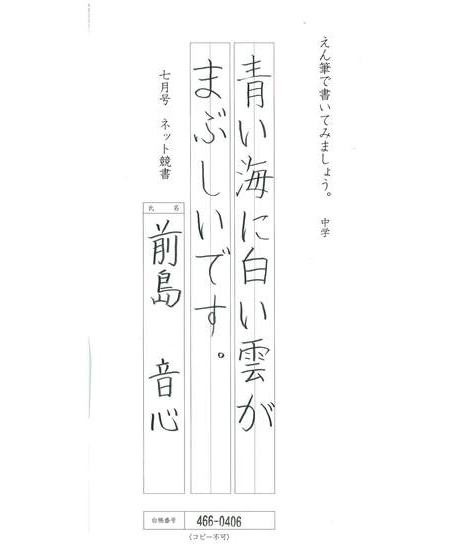 えん筆で書いてみましょう。 中学
青い海に白い雲が
まぶしいです。
七月号 ネット競書
氏 名
前島 音心
台帳番号 466-0406
(コピー不可)